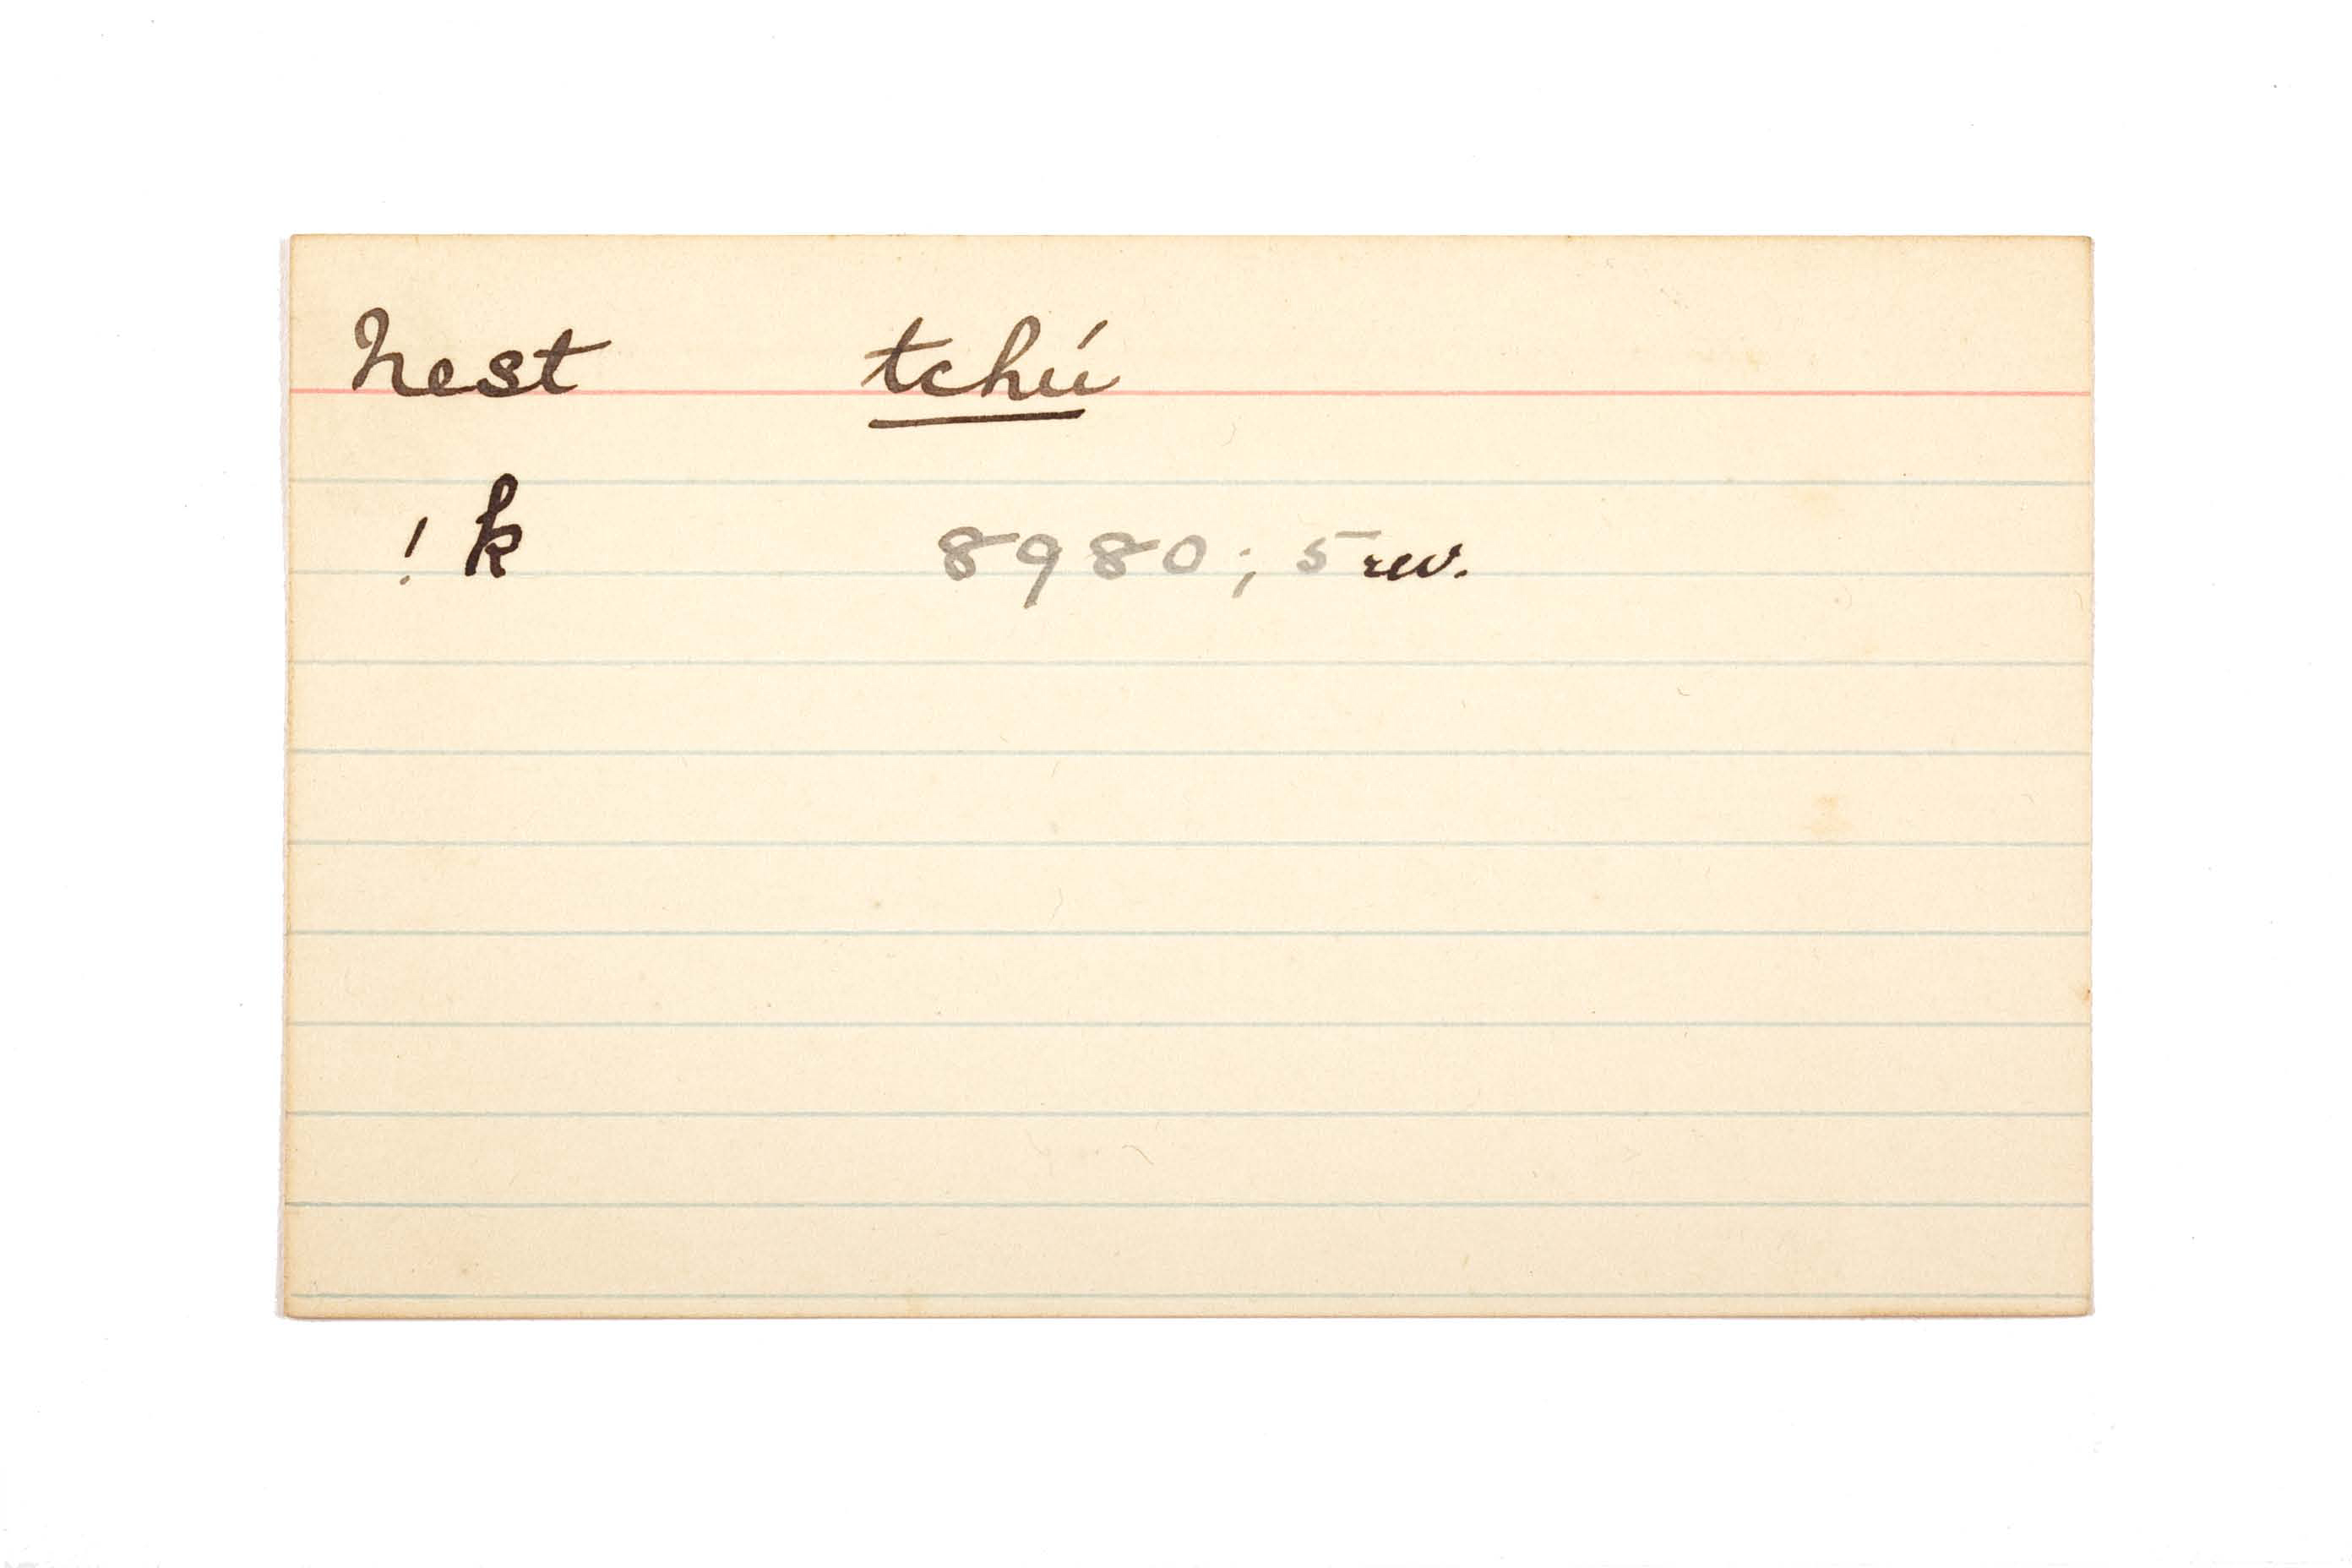 Nest tchú
!k 8980; 5 rev.